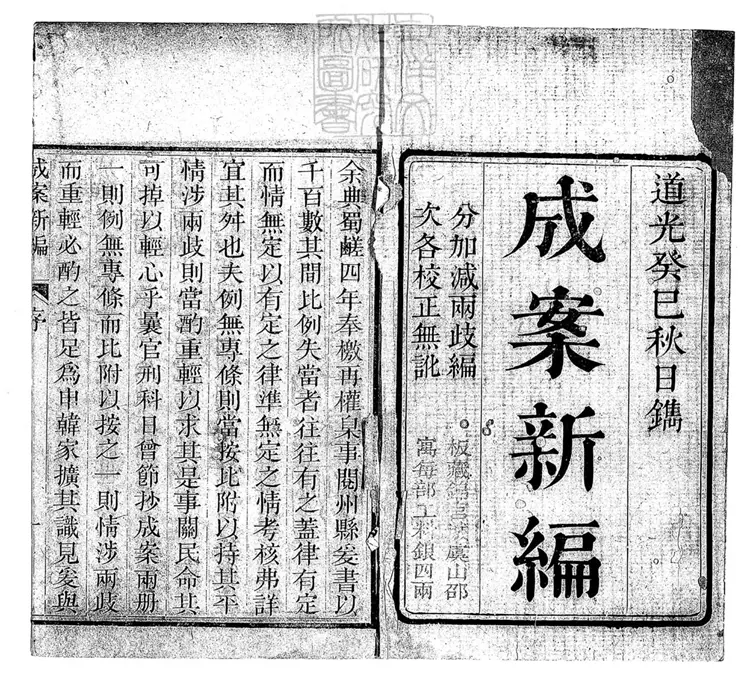 道光癸巳秋日鐫
成案新編
分加減兩歧編
次各校正無訛
板藏 虞山邵
寓每部工料銀四兩
余典蜀鹺四年奉檄再權臬事閱州縣爰書以
千百數其間比例失當者往往有之蓋律有定
而情無定以有定之律準無定之情考核弗詳
宜其舛也夫例無專條則當按比附以持其平
情涉兩歧則當酌重輕以求其是事關民命其
可掉以輕心乎曩官刑科日曾節抄成案兩册
一則例無專條而比附以按之一則情涉兩歧
而重輕必酌之皆足爲申韓家擴其識見爰與
成案新編 序 一